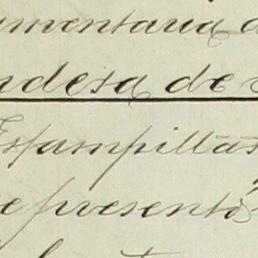 umentaria d
ndesa de
Estampillas
epresentó